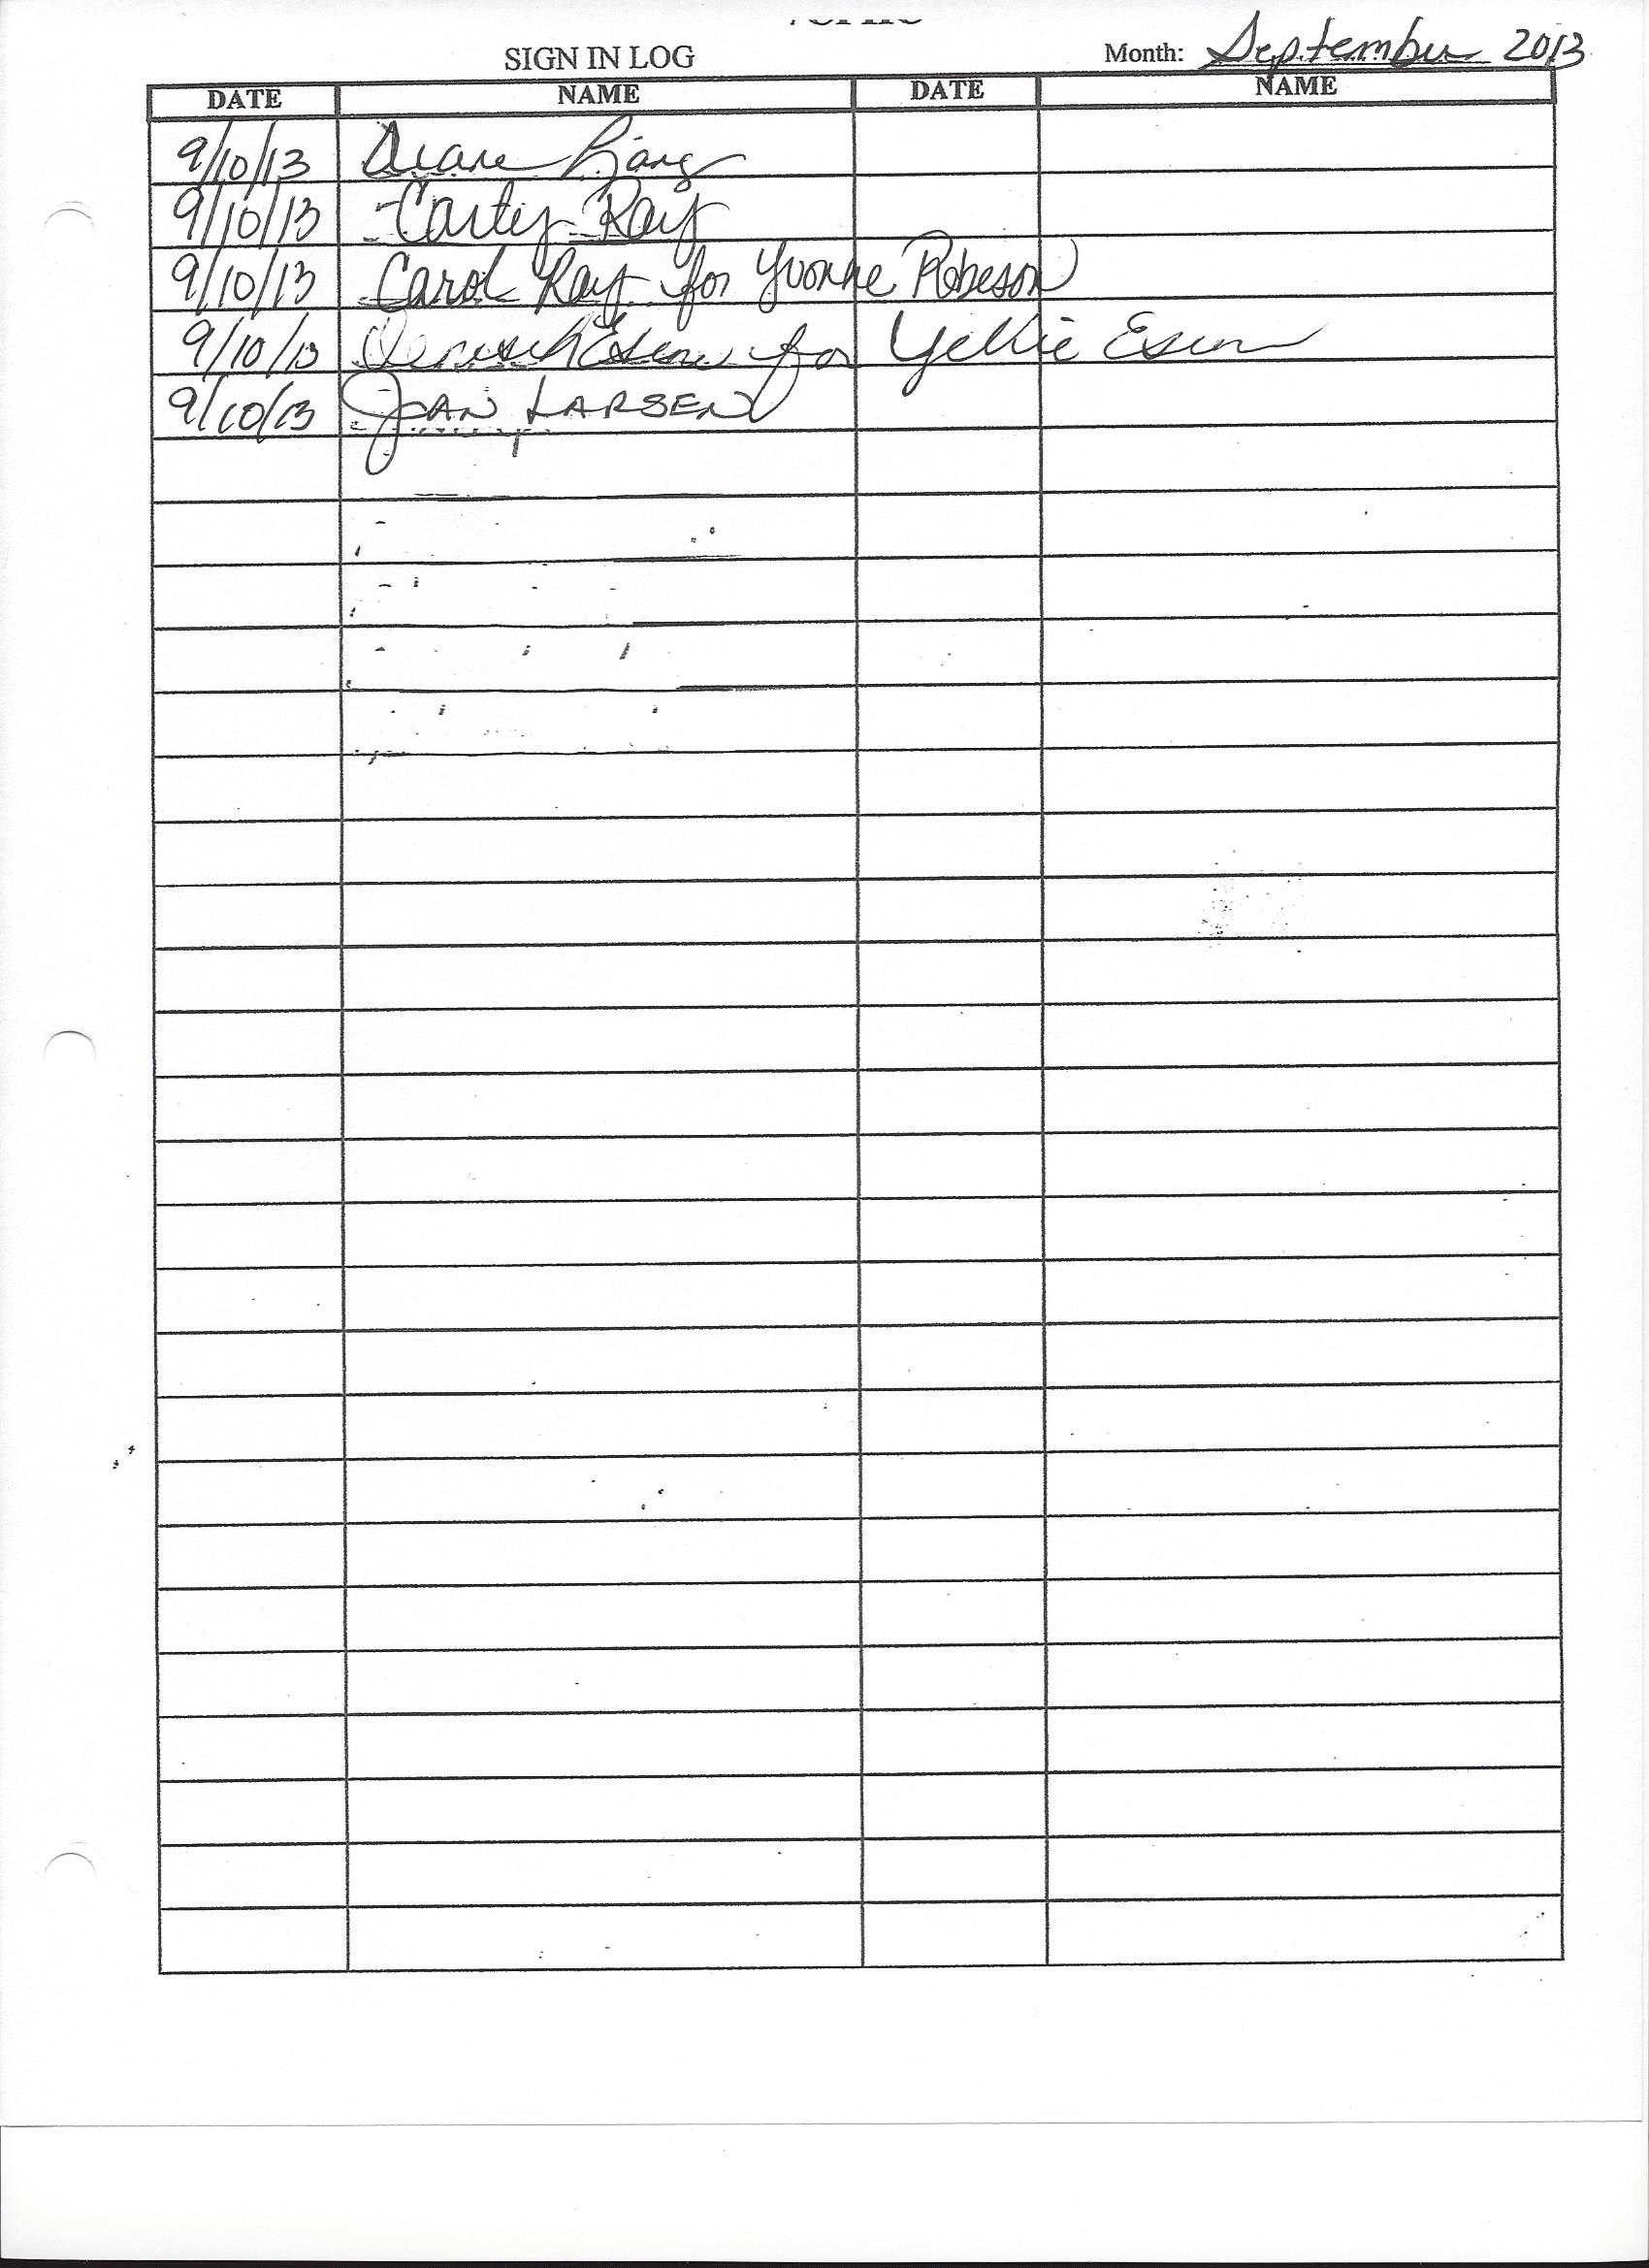 SIGN IN LOG Month: September 2013
DATE NAME DATE NAME
9/10/13 Diane
9/10/13 Ray
9/10/13 Carol Ray for Yvonne Robeson
9/10/13 for
9/10/13 JOAN LARSEN